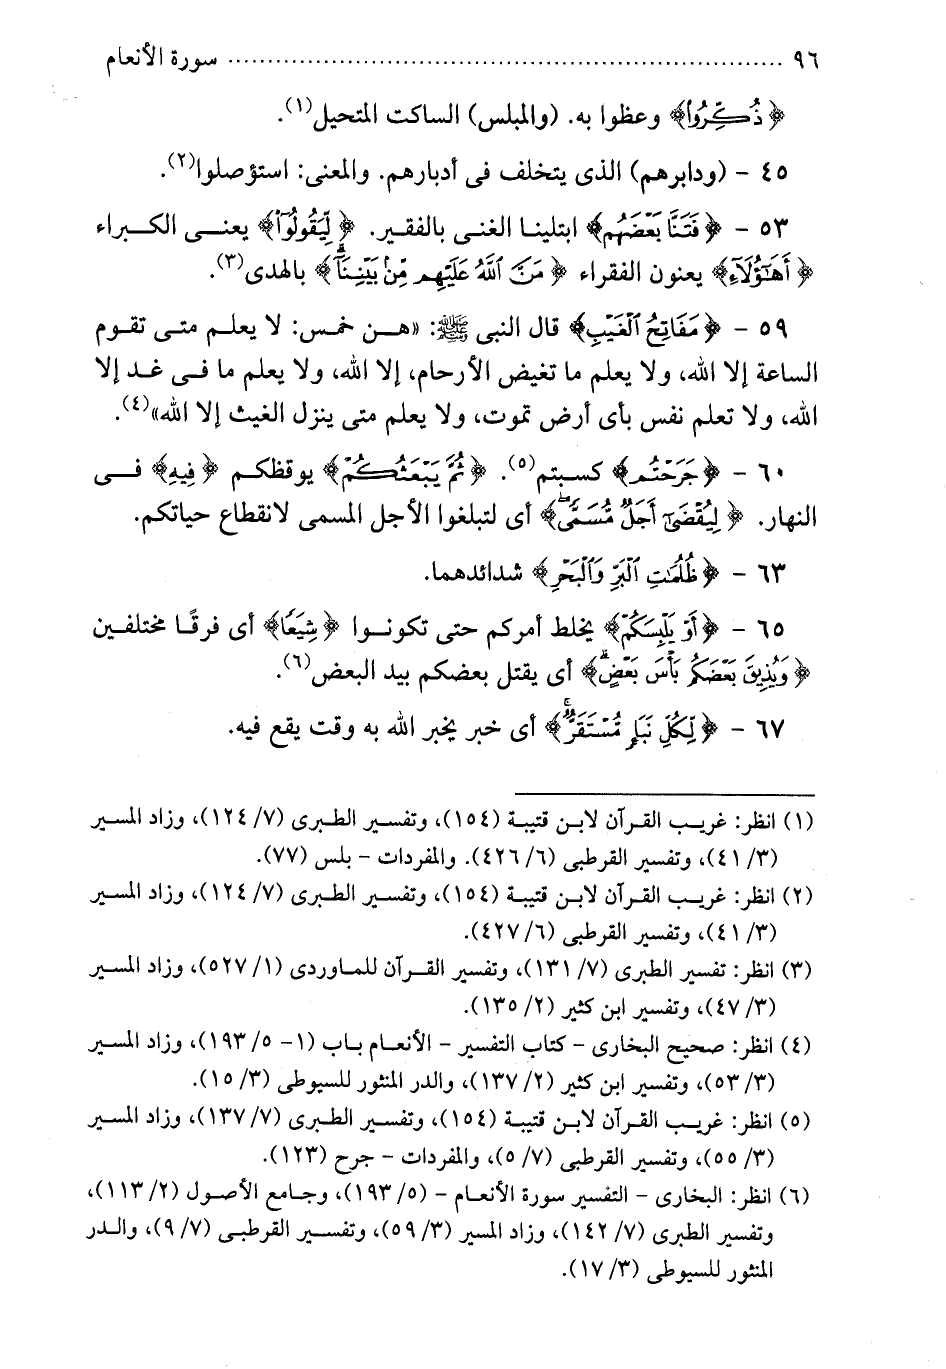 ٩٦ ........................................................ سورة الأنعام
﴿ذُكِّرُوا۟﴾ وعظوا به. (والمبلس) الساكت المتحيل(١).
٤٥ - (ودابرهم) الذى يتخلف فى أدبارهم. والمعنى: استؤصلوا(٢).
٥٣ - ﴿فَتَنَّا بَعْضَهُم﴾ ابتلينا الغنى بالفقير. ﴿لِّيَقُولُوٓا۟﴾ يعنى الكبراء
﴿أَهَٰٓؤُلَآءِ﴾ يعنون الفقراء ﴿مَنَّ ٱللَّهُ عَلَيْهِم مِّنۢ بَيْنِنَآ﴾ بالهدى(٣).
٥٩ - ﴿مَفَاتِحُ ٱلْغَيْبِ﴾ قال النبى ﷺ: «هن خمس: لا يعلم متى تقوم
الساعة إلا الله، ولا يعلم ما تغيض الأرحام، إلا الله، ولا يعلم ما فى غد إلا
الله، ولا تعلم نفس بأى أرض تموت، ولا يعلم متى ينزل الغيث إلا الله»(٤).
٦٠ - ﴿جَرَحْتُم﴾ كسبتم(٥). ﴿ثُمَّ يَبْعَثُكُمْ﴾ يوقظكم ﴿فِيهِ﴾ فى
النهار. ﴿لِيُقْضَىٰٓ أَجَلٌ مُّسَمًّى﴾ أى لتبلغوا الأجل المسمى لانقطاع حياتكم.
٦٣ - ﴿ظُلُمَٰتِ ٱلْبَرِّ وَٱلْبَحْرِ﴾ شدائدهما.
٦٥ - ﴿أَوْ يَلْبِسَكُمْ﴾ يخلط أمركم حتى تكونوا ﴿شِيَعًا﴾ أى فرقًا مختلفين
﴿وَيُذِيقَ بَعْضَكُم بَأْسَ بَعْضٍ﴾ أى يقتل بعضكم بيد البعض(٦).
٦٧ - ﴿لِّكُلِّ نَبَإٍ مُّسْتَقَرٌّ﴾ أى خبر يخبر الله به وقت يقع فيه.
(١) انظر: غريب القرآن لابن قتيبة (١٥٤)، وتفسير الطبرى (٧/ ١٢٤)، وزاد المسير
(٣/ ٤١)، وتفسير القرطبى (٦/ ٤٢٦). والمفردات - بلس (٧٧).
(٢) انظر: غريب القرآن لابن قتيبة (١٥٤)، وتفسير الطبرى (٧/ ١٢٤)، وزاد المسير
(٣/ ٤١)، وتفسير القرطبى (٦/ ٤٢٧).
(٣) انظر: تفسير الطبرى (٧/ ١٣١)، وتفسير القرآن للماوردى (١/ ٥٢٧)، وزاد المسير
(٣/ ٤٧)، وتفسير ابن كثير (٢/ ١٣٥).
(٤) انظر: صحيح البخارى - كتاب التفسير - الأنعام باب (١- ٥/ ١٩٣)، وزاد المسير
(٣/ ٥٣)، وتفسير ابن كثير (٢/ ١٣٧)، والدر المنثور للسيوطى (٣/ ١٥).
(٥) انظر: غريب القرآن لابن قتيبة (١٥٤)، وتفسير الطبرى (٧/ ١٣٧)، وزاد المسير
(٣/ ٥٥)، وتفسير القرطبى (٧/ ٥)، والمفردات - جرح (١٢٣).
(٦) انظر: البخارى - التفسير سورة الأنعام - (٥/ ١٩٣)، وجامع الأصول (٢/ ١١٣)،
وتفسير الطبرى (٧/ ١٤٢)، وزاد المسير (٣/ ٥٩)، وتفسير القرطبى (٧/ ٩)، والدر
المنثور للسيوطى (٣/ ١٧).